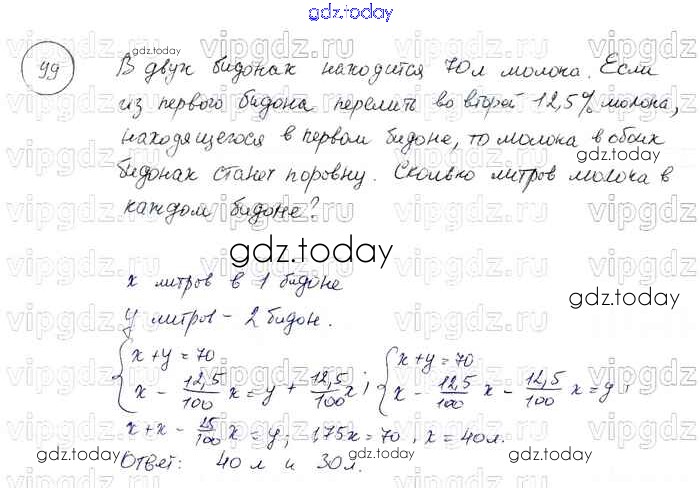 gdz.today
99
В двух бидонах находится 70 л молока. Если
из первого бидона перелить во второй 12,5% молока,
находящегося в первом бидоне, то молока в обоих
бидонах станет поровну. Сколько литров молока в
каждом бидоне?
gdz.today
x литров в 1 бидоне
y литров - 2 бидон.
{ x + y = 70 { x + y = 70
x - 12,5/100 x = y + 12,5/100 x ; x - 12,5/100 x - 12,5/100 x = y ;
x + x - 25/100 x = y ; 1,75x = 70 , x = 40 л.
Ответ: 40 л и 30 л.
gdz.today
vipgdz.ru